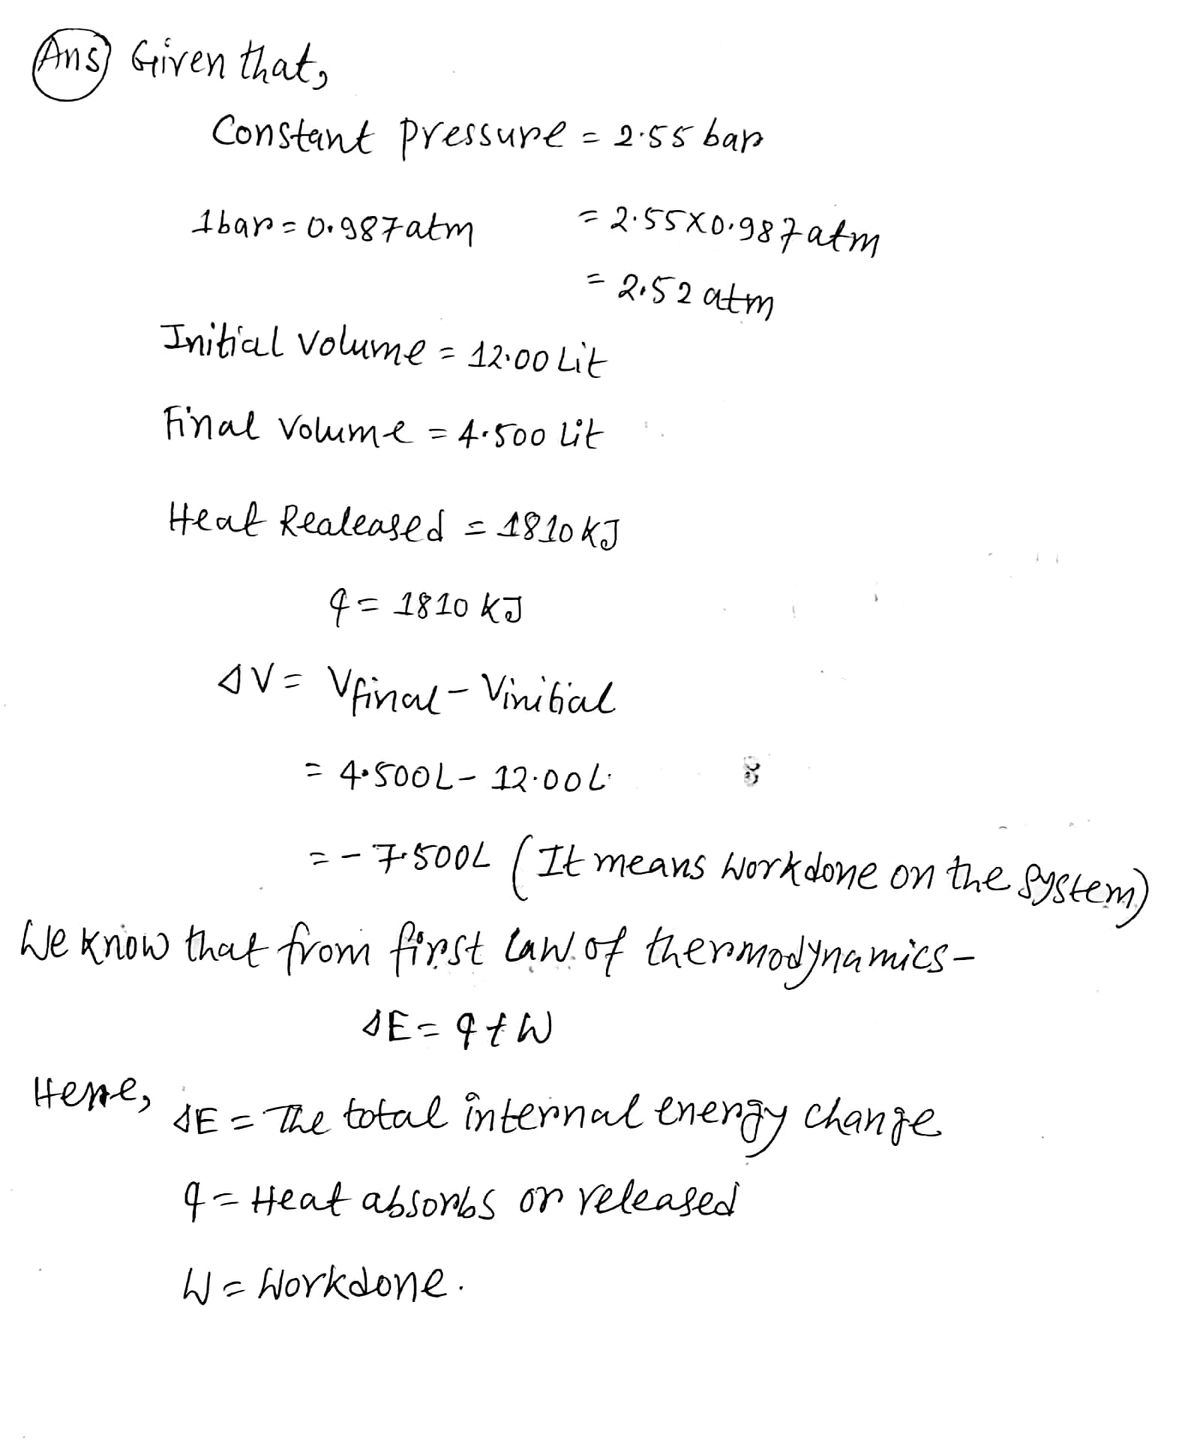 Ans Given that,
Constant pressure = 2.55 bar
1bar = 0.987atm = 2.55X0.987atm
= 2.52 atm
Initial volume = 12.00 Lit
Final volume = 4.500 Lit
Heat Realeased = 1810 KJ
q = 1810 KJ
ΔV = Vfinal - Vinitial
= 4.500L - 12.00L
= - 7.500L (It means workdone on the system)
We know that from first law of thermodynamics-
ΔE = q + W
Here,
ΔE = The total internal energy change
q = Heat absorbs or released
W = Workdone.